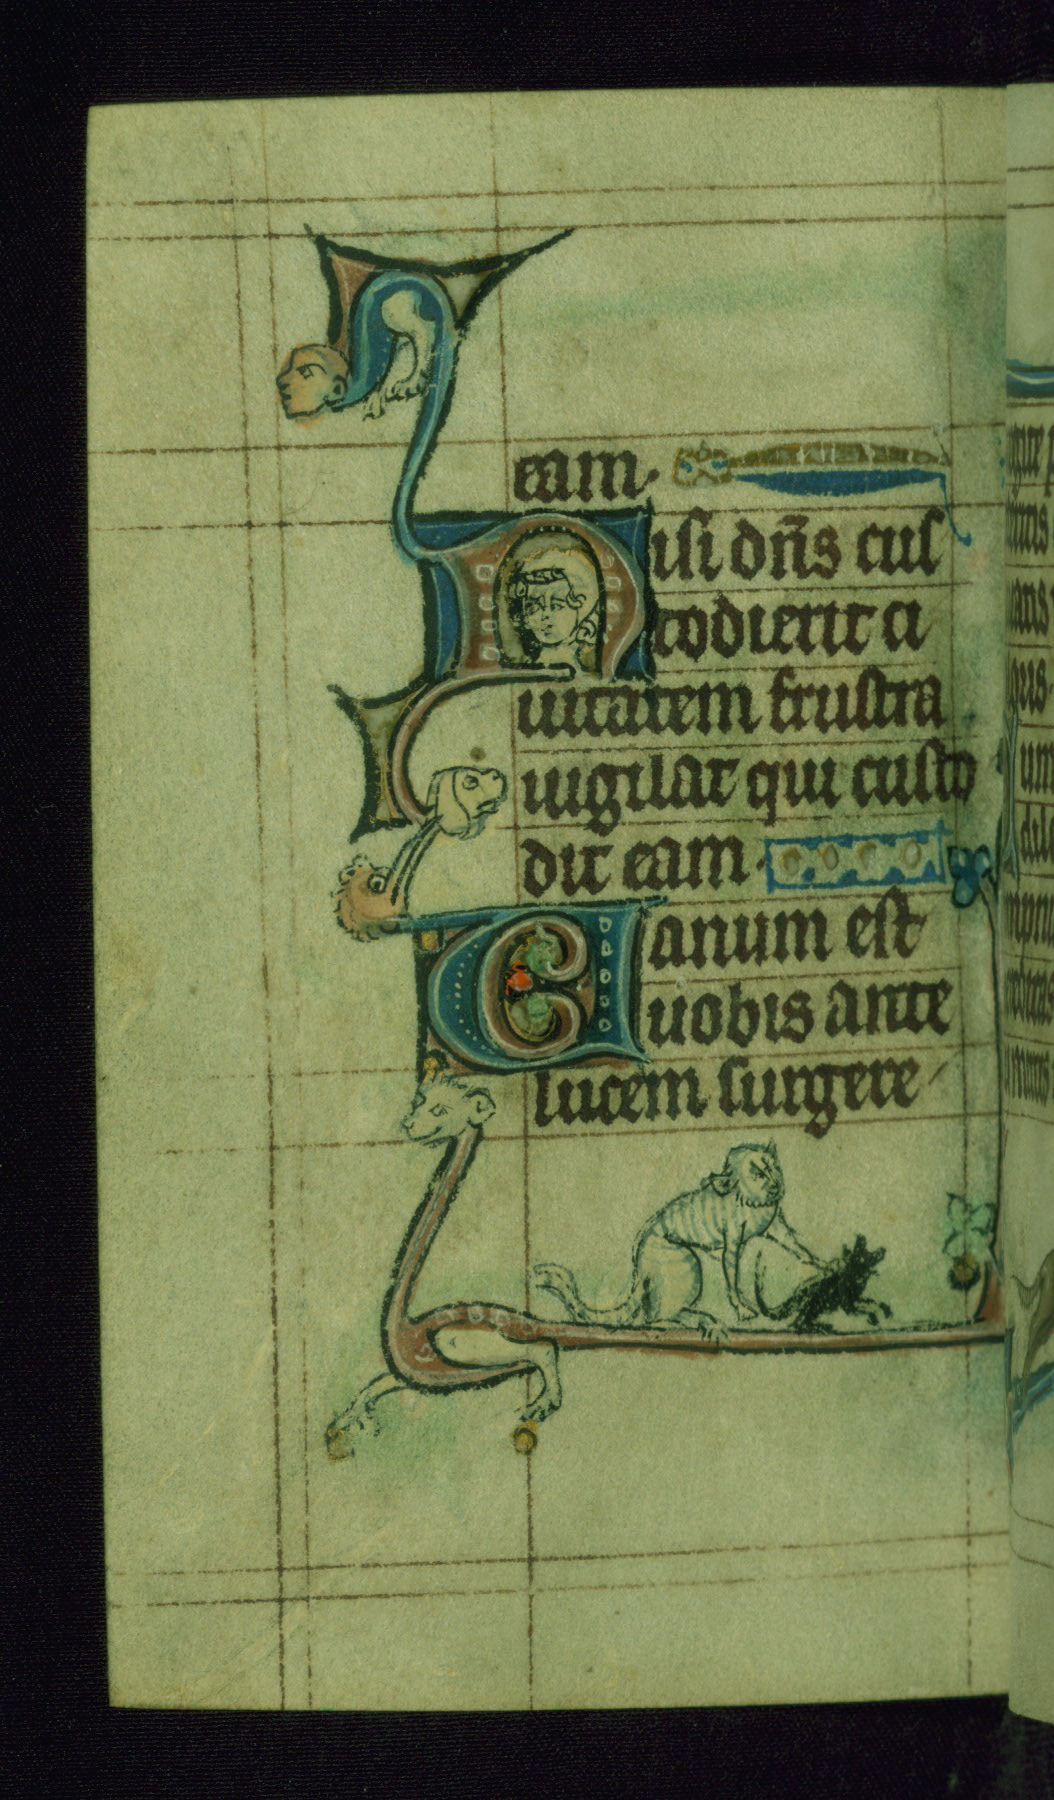 eam.
Nisi dn̄s cus
todierit ci
uitatem frustra
uigilat qui custo
dit eam.
Uanum est
uobis ante
lucem surgere